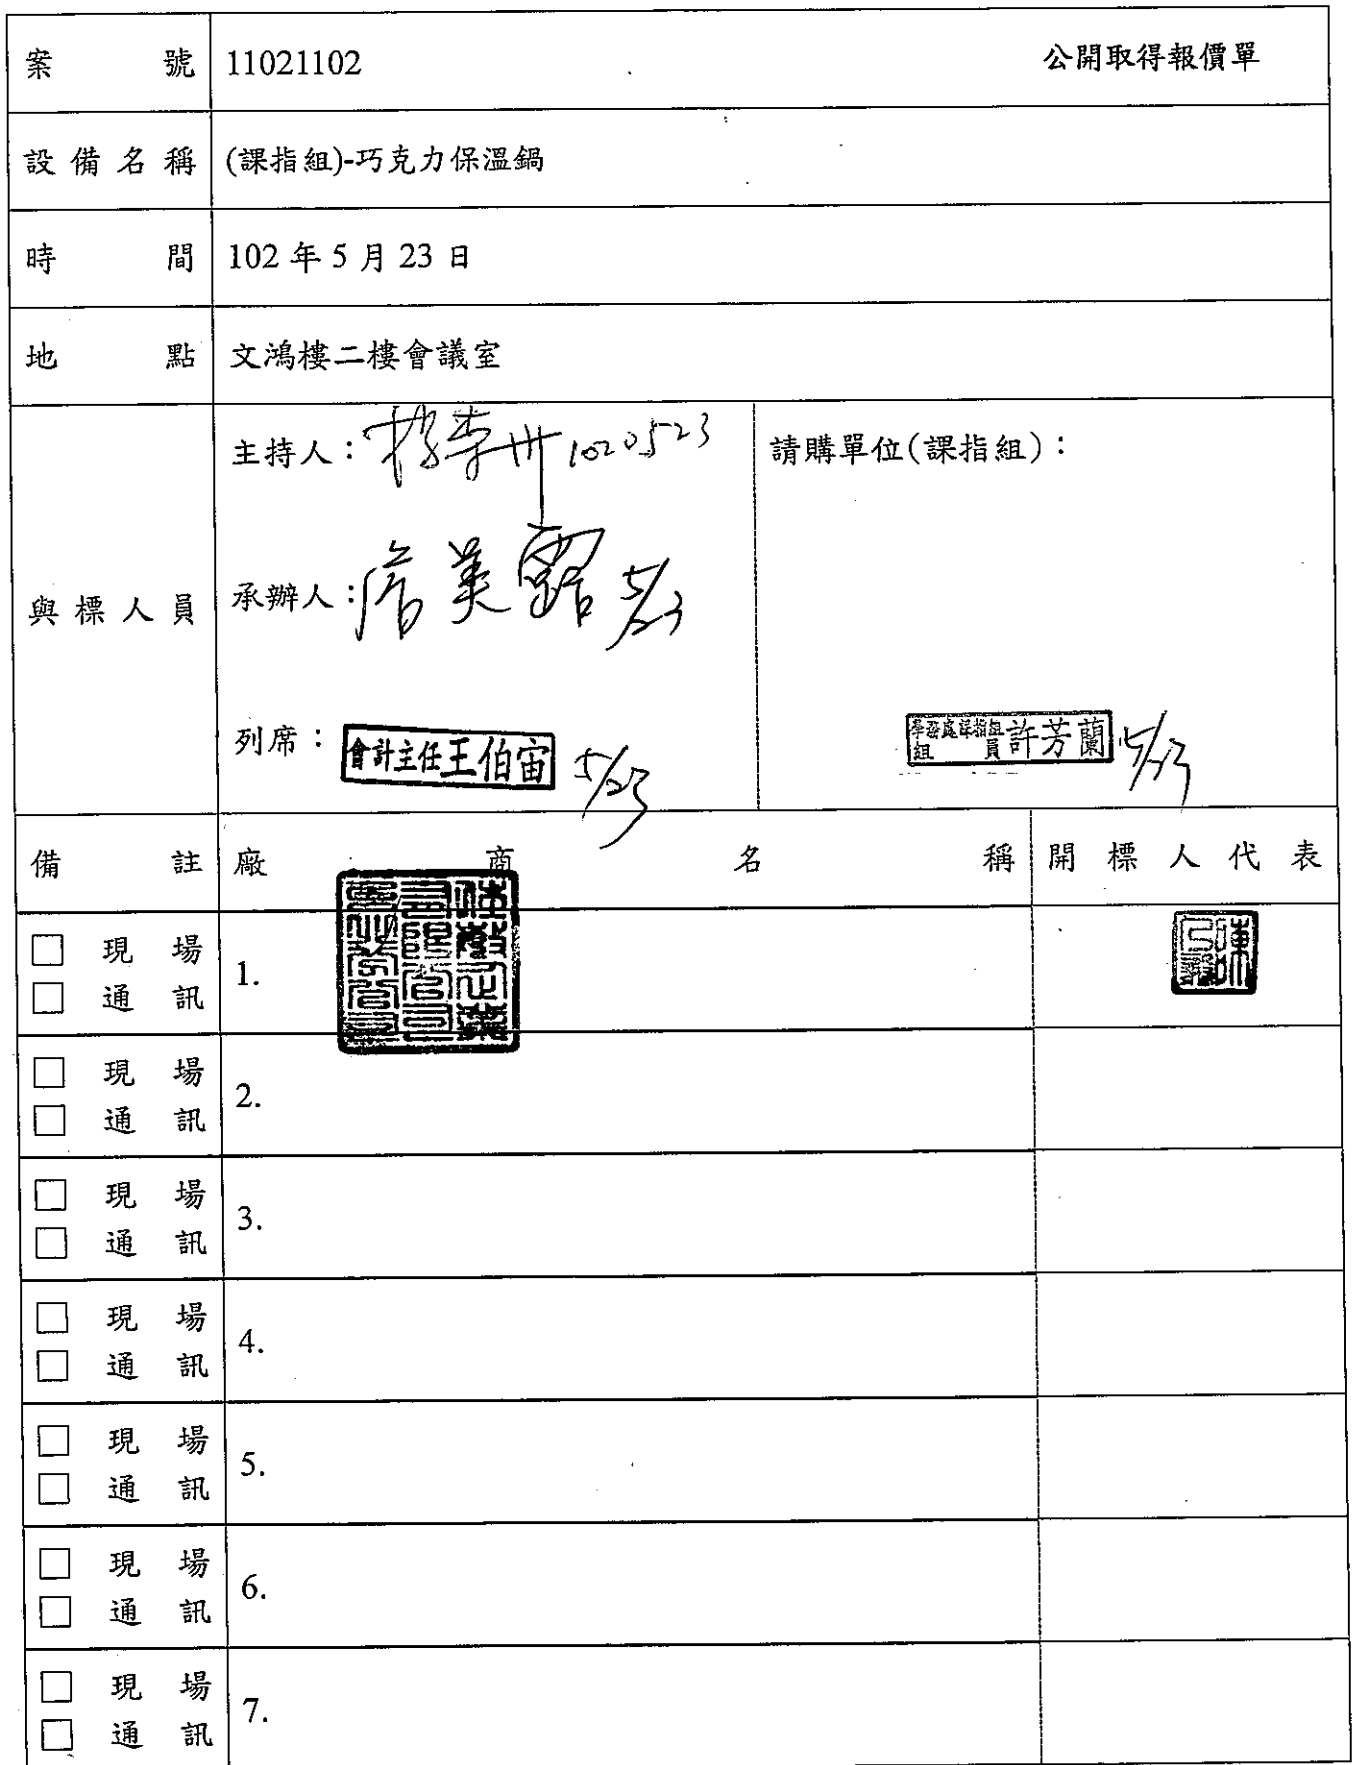 案號 11021102 公開取得報價單
設備名稱 (課指組)-巧克力保溫鍋
時間 102 年 5 月 23 日
地點 文鴻樓二樓會議室
與標人員
主持人：1020523
請購單位(課指組)：
承辦人：詹美露 5/23
列席：會計主任王伯宙 5/23
學務處課指組組員許芳蘭 5/23
備註 廠商名稱 開標人代表
□ 現場
□ 通訊
1.
□ 現場
□ 通訊
2.
□ 現場
□ 通訊
3.
□ 現場
□ 通訊
4.
□ 現場
□ 通訊
5.
□ 現場
□ 通訊
6.
□ 現場
□ 通訊
7.